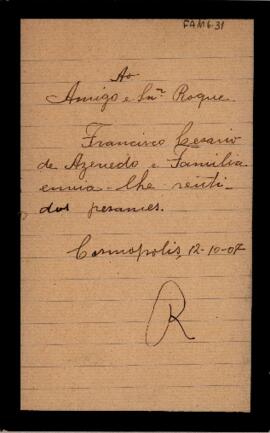 FAM 6.31
Ao
Amigo e Snr Roque.
Francisco Cesario
de Azevedo e Familia
envia-lhe senti-
dos pesames.
Cosmopolis, 12-10-07
R